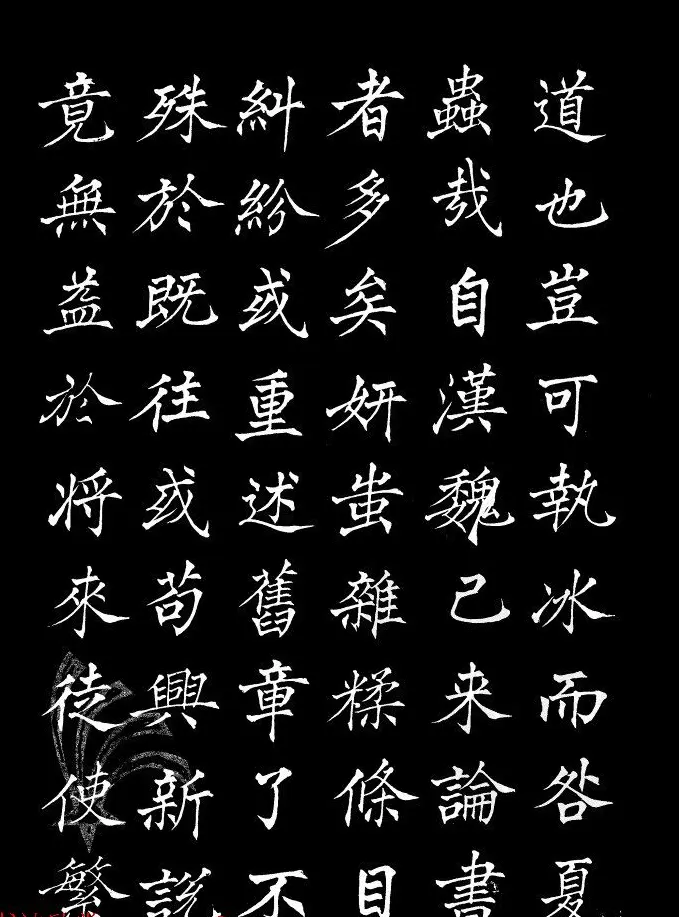 道也豈可執冰而咎夏
蟲哉自漢魏已来論書
者多矣妍蚩雜糅條目
糾紛或重述舊章了不
殊於既往或苟興新説
竟無益於将來徒使繁